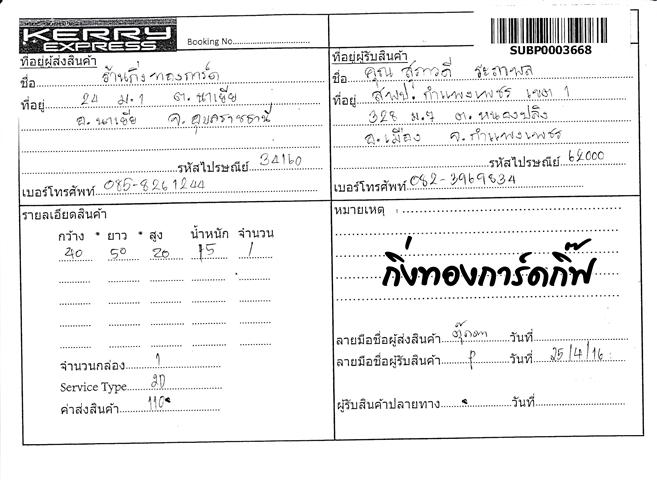 KERRY
EXPRESS
Booking No
SUBP0003668
ที่อยู่ผู้ส่งสินค้า
ชื่อ ร้านกิ่งทองการ์ด
ที่อยู่ 24 ม.1 ต.นาเยีย
อ.นาเยีย จ.อุบลราชธานี
รหัสไปรษณีย์ 34160
เบอร์โทรศัพท์ 085-8261244
ที่อยู่ผู้รับสินค้า
ชื่อ คุณ สุภาวดี
ที่อยู่ สพป.กำแพงเพชร เขต 1
328 ม.7 ต.หนองปลิง
อ.เมือง จ.กำแพงเพชร
รหัสไปรษณีย์ 62000
เบอร์โทรศัพท์ 082-3969834
รายละเอียดสินค้า
กว้าง * ยาว * สูง น้ำหนัก จำนวน
40 50 20 15 1
จำนวนกล่อง 1
Service Type 2D
ค่าส่งสินค้า 110
หมายเหตุ
กิ่งทองการ์ดกิ๊ฟ
ลายมือชื่อผู้ส่งสินค้า ตุ๊กตา วันที่
ลายมือชื่อผู้รับสินค้า วันที่ 25/4/16
ผู้รับสินค้าปลายทาง วันที่